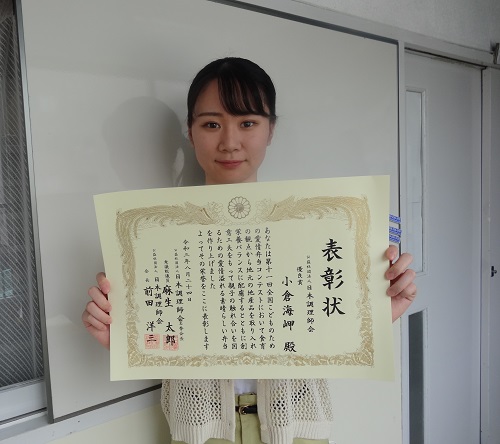 表彰状
公益社団法人日本調理師会
優良賞
小倉海岬 殿
あなたは第十一回全国こどものため
の愛情弁当コンテストにおいて食育
の観点から地元の地産品を取り入れ
栄養バランスに配慮するとともに創
意工夫をもって親子の触れ合いを図
るための愛情あふれる素晴らしい弁当
を作り上げました
よってその栄誉をここに表彰します
令和三年八月二十四日
公益社団法人日本調理師会
麻生 太郎
公益社団法人日本調理師会
会長 前田 洋三